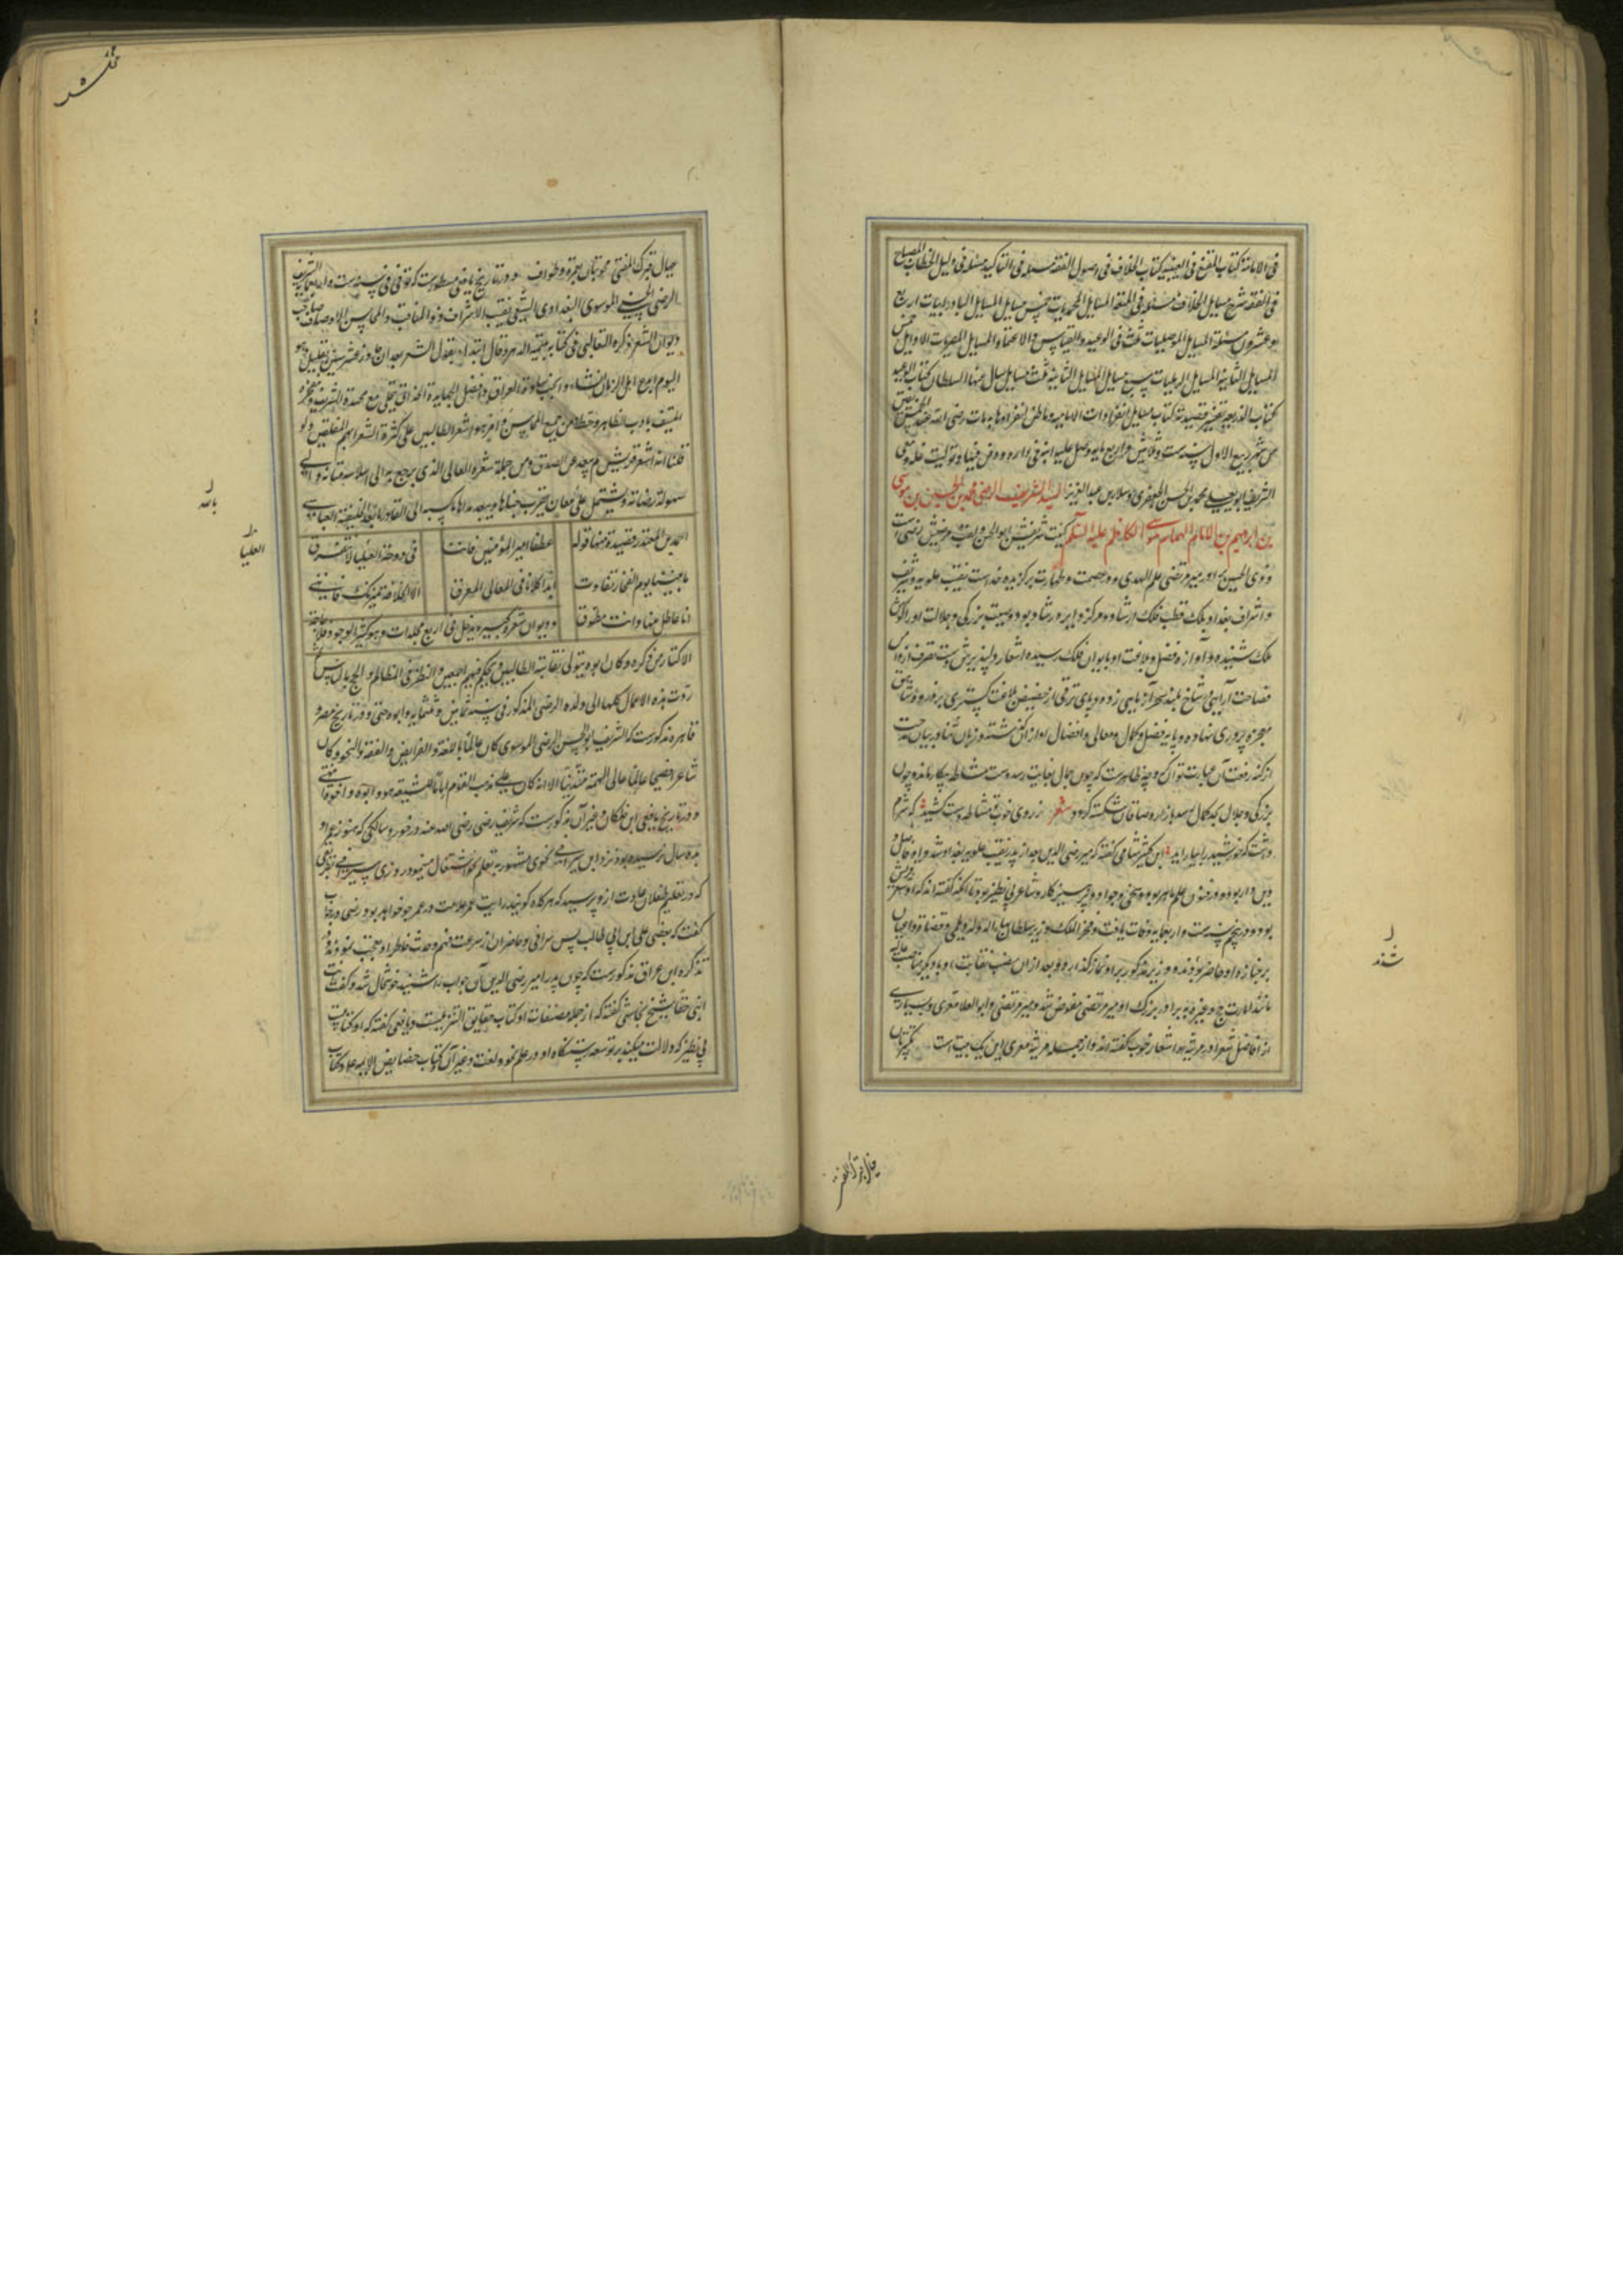 فی الامامة کتاب المقنع فی الغیبة کتاب الخلاف فی اصول الفقه مسئله فی التاکید مسئله فی دلیل الخطاب المصباح
فی الفقه شرح مسایل الخلاف مسئله فی المتعة المسایل المحمدیات خمس مسایل المسایل البادرایات اربع
و عشرون مسئلة المسایل الموصلیات ثلث فی الوعید و القیاس و الاعتماد المسایل المصریات الاوایل خمس
المسایل الثانیة المسایل الرملیات سبع مسایل المسایل الثانیة ثلث مسایل سال عنها السلطان کتاب الوعید
کتاب الذریعة تفسیر قصیدته کتاب مسایل انفرادات الامامیه و ما ظن انفرادها به مات رضی الله عنه لخمس بقین
من شهر ربیع الاول سنة ست و ثلاثین و اربع مایه و صلی علیه ابنه فی داره و دفن فیها و تولیت غسله و معی
الشریف ابو یعلی محمد بن الحسن الجعفری و سلار بن عبد العزیز السید الشریف الرضی محمد بن الحسین بن موسی
بن ابراهیم بن الامام الهمام موسی الکاظم علیه السلم کنیت شریفش ابو الحسن و لقب مرضیش رضی است
و ذوی الحسبین برادر میر مرتضی علم الهدی و در عصمت و طهارت برگزیده خداست نقیب علویه و شریف
و اشراف بغداد بلکه قطب فلک ارشاد و مرکز دایره رشاد بود وصیت بزرگی و جلالت او را گوش
ملک شنیده و آوازه فضل و بلاغت او بایوان فلک رسیده اشعار دلپذیرش دست تصرف از دامن
فصاحت آرایی شاخ بلند سحر آزمایی زده و پای ترقی از حضیض بلاغت گستری بر فرود شاهق
معجزه پروری نهاده و پایه فضل و کمال و معالی و افضال او از آن گذشته که زبان ثنا و بیان مدحت
از کنه رفعت آن عبارت تواند کرد چه ظاهرست که چون جمال بغایت رسد دست مشاطه بیکار ماند و چون
بزرگی و جلال بحد کمال رسد بازار وصافان شکسته گردد شعر ز روی خوب تو مشاطه دست کشید که شرم
داشت که خورشید را بیاراید ابن کثیر شامی گفته که میر رضی الدین بعد از پدر نقیب علویه بغداد شد و او فاضل و
دین دار بود و در فنون علم ماهر بود و سخی و جواد و پرهیزکار و شاعر بی نظیر بود تا آنکه گفته اند که او شعر قریش
بود و در پنجم سنه ست و اربعمایه وفات یافت و فخر الملک وزیر سلطان بهاء الدوله دیلمی و قضاة و اعیان
بر جنازه او حاضر بودند و وزیر مذکور بر او نماز گذارد و بعد از ان منصب نقابت او و دیگر مناصب عالیه
مانند امارت حج و غیره به برادر بزرگ او میر مرتضی مفوض شد و میر مرتضی و ابو العلا معری و بسیاری
از افاضل شعرا در مرثیه او اشعار خوب گفته اند و از جمله مرثیه معری این یک بیت است
شدند
خیال قبرک المفتی محبتان بعمره و طواف و در تاریخ یافعی مسطورست که توفی فی سنه ست و اربعمایه الشریف
الرضی الحسینی الموسوی البغدادی الشیعی نقیب الاشراف ذو المناقب و المحاسن الاوصاف صاحب
دیوان الشعر ذکره الثعالبی فی کتابه یتیمة الدهر و قال ابتداء بقول الشعر بعد ان جاوز عشر سنین بقلیل و هو
الیوم ابدع اهل الزمان انشاء و انجب سادة العراق و افضل الجهابذة الحذاق یتحلی مع محتده الشریف و مفخره
المنیف بادب الظاهر و حظ من جمیع المحاسن وافر ثم هو اشعر الطالبیین علی کثرة الشعرائهم المفلقین و لو
قلنا انه اشعر قریش لم یبعد عن الصدق و من جملة شعره العالی الذی یرجع به الی السلاسة متانة و الی
سهولة رصانة و یشتمل علی معان یقرب جناها و یبعد مداها ما کتبه الی القادر بالله الخلیفة العباسی
بالله
احمد بن المقتدر قصیدة منها قوله عطفا امیر المؤمنین فاننا فی دوحة العلیا لا نتفرق
العلیا
ما بیننا یوم الفخار تفاوت ابدا کلانا فی المعالی المعرق الا الخلافة تمیزتک فاننی
انا عاطل منها و انت مطوق و دیوان شعره کبیر و یدخل فی اربع مجلدات و هو کثیر الوجود فلا حاجة
الاکثار من ذکره و کان ابوه یتولی نقابة الطالبیین و یحکم فیهم اجمعین و النظر فی المظالم و الحج بالناس ثم
ردت هذه الاعمال کلها الی ولده الرضی المذکور فی سنه ثمانین و ثلثمایه و ابوه حی و در تاریخ مصر و
قاهره مذکورست که الشریف ابو الحسن الرضی الموسوی کان عالما باللغة و الفرایض و الفقه و النحو و کان
شاعرا فصیحا عالما عالی الهمة متدینا الا انه کان علی مذهب القوم اماما للشیعة هو و ابوه و اخوه
و در تاریخ یافعی ابن خلکان و غیر آن مذکورست که شریف رضی رضی الله عنه در خورد سالگی که هنوز عمر او
بده سال نرسیده بود نزد ابن سیرافی نحوی مشهور به تعلم نحو اشتغال مینمود روزی سیرافی بطریقی
که در تعلیم طفلان عادت از و پرسید که هرگاه گویند رایت عمر علامت نصب در عمر چه خواهد بود رضی در جواب
گفت که بغض علی ابن ابی طالب پس سرافی و حاضران از سرعت فهم و حدت خاطر او تعجب نمودند و در
تذکره ابن عراق مذکورست که چون پدر امیر رضی الدین آن جواب را شنید خوشحال شد و گفت انت
ابنی حقا شیخ نجاشی گفته که از جمله مصنفات او کتاب حقایق التنزیل است و یافعی گفته که او کتابیست
بی نظیر که دلالت میکند بر توسعه دستگاه او در علم نحو و لغت و غیر آن و کتاب خصایص الایمه علیه و کتاب